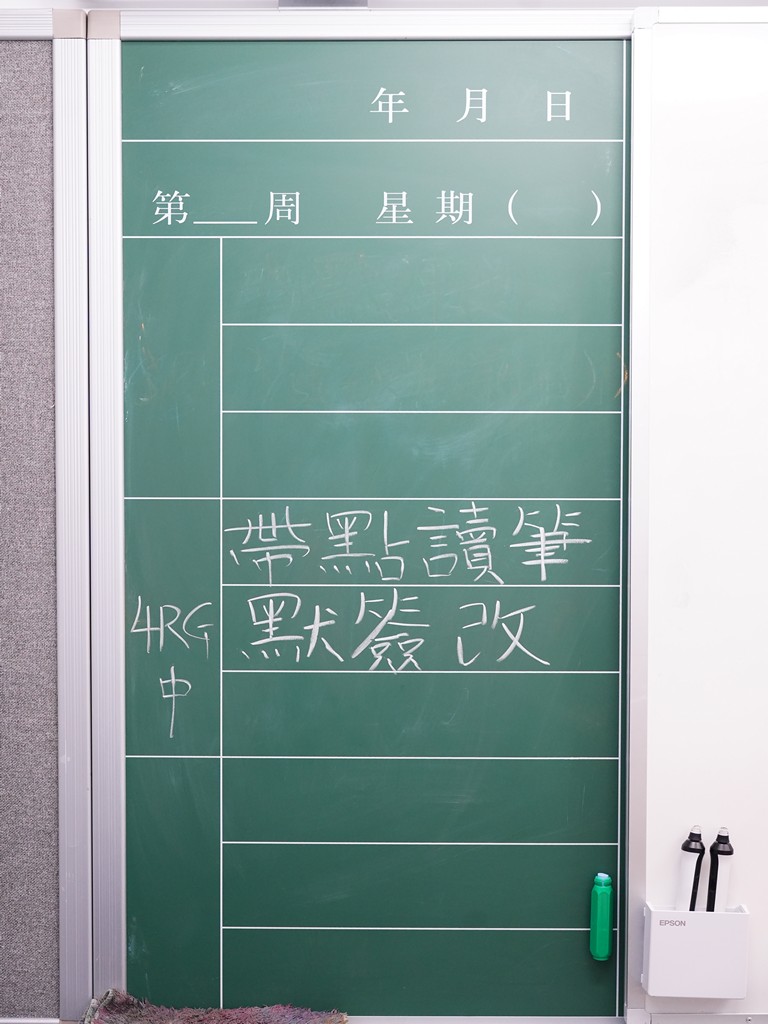 年 月 日
第___周 星期( )
帶點讀筆
4RG
默簽改
中
EPSON